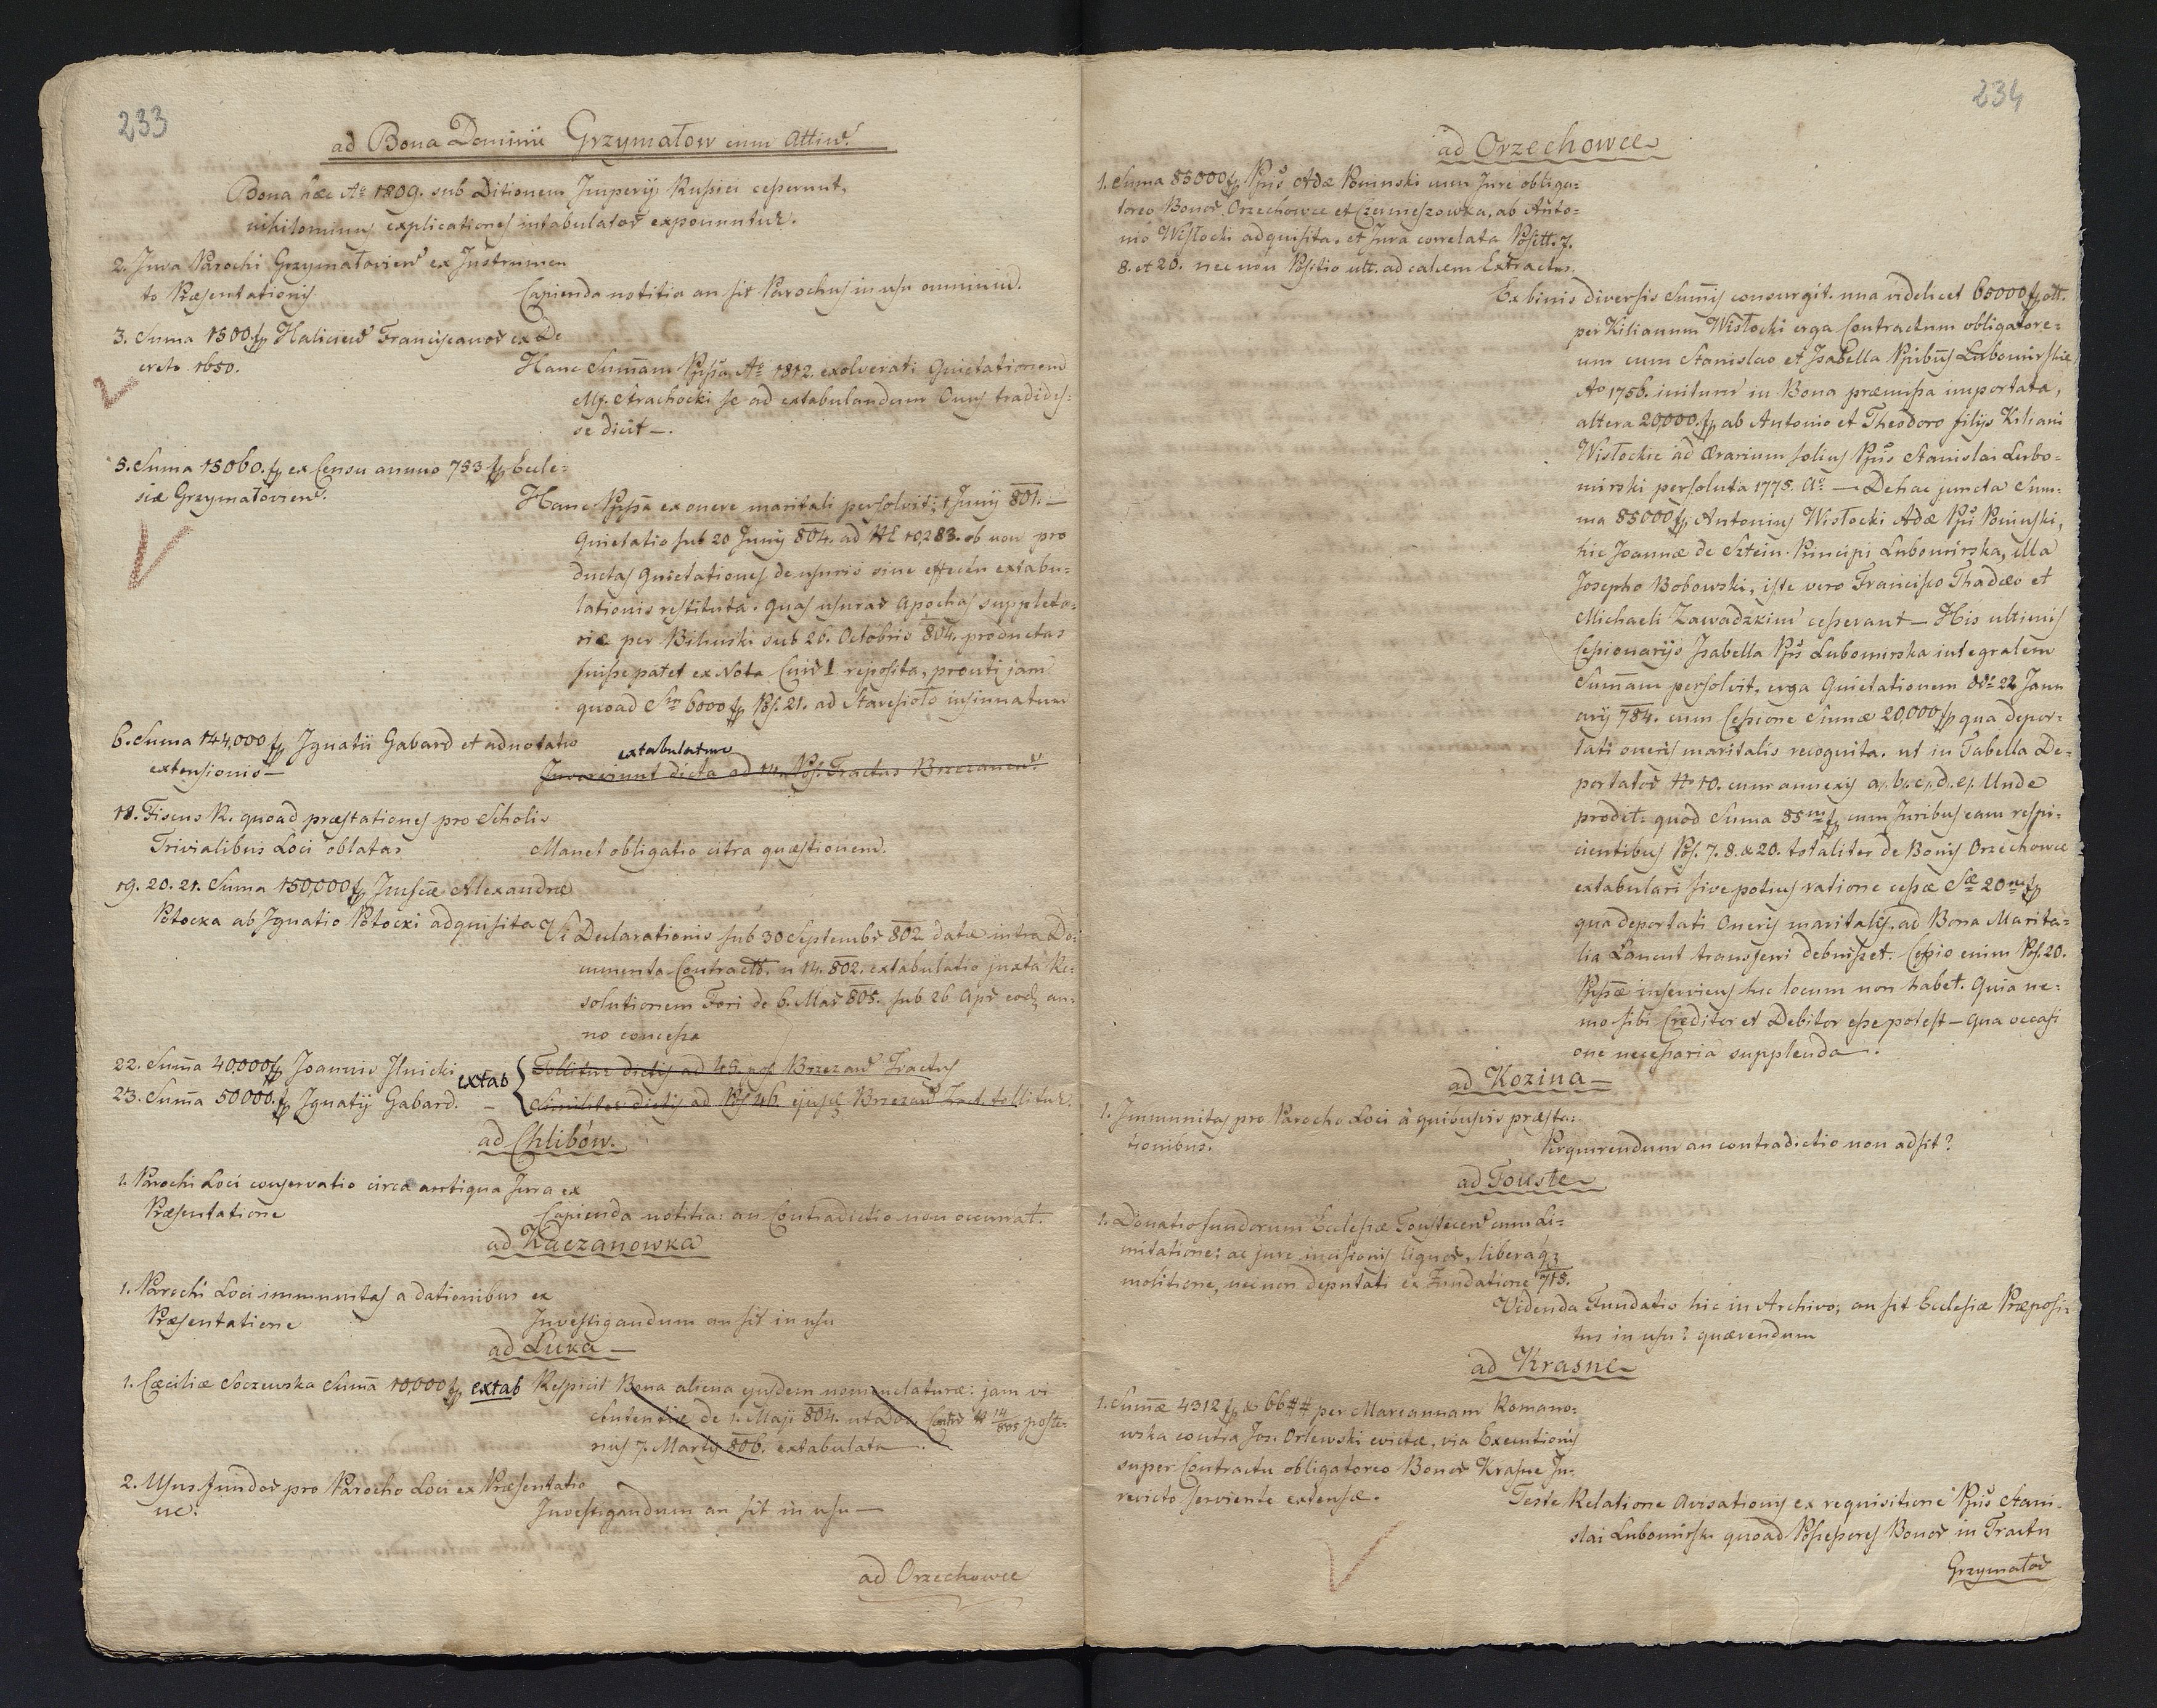 233
ad Bona Dominii Grzymałow cum Attiñ.
Bona hæc Aº 1809. sub Ditionem Imperij Russici cesserunt,
nihilominus explicationes intabulator exponuntur.
2. Jura Parochi Grzymałovien ex Instrumen
to Præsentationis
Capienda notitia an sit Parochus in usu omnium.
3. Suma 1500 fp Halicien Franciscanor ex De
creto 1650.
Hanc Sumam Ppssa Aº 1812. exolverati Quietationem
Mf. Strachocki se ad extabulandum Onus tradidis-
se dicit —.
5. Suma 15060. fp ex Censu annuo 753 fp Eccle-
siæ Grzymałovien.
Hanc Ppssa ex onere maritali persolvit; 1 Junij 801. —
Quietatio sub 20 Junij 804. ad NE 10,283. ob non pro
ductas Quietationes de usuris sine effectu extabu-
lationis restituta. Quas usurar Apochas suppleto-
riæ per Bilinski sub 26. Octobris 804. productas
fuisse patet ex Nota Cuis 1 reposita, prouti jam
quoad Sm 6000 fp Ps. 21. ad Staresioło insinuatum
6. Suma 144,000 fp Ignatii Gabard et adnotatio
extensionis —
extabulatum
Inveniunt dicta ad 14. Pos. Tractus Brzezanen.
18. Fiscus R. quoad præstationes pro Scholis
Trivialibus Loci oblatas
Manet obligatio citra quæstionem.
19. 20. 21. Suma 150,000 fp Alexandræ
Potocka ab Ignatio Potocki adquisita
Vi Declarationis sub 30 Septembr 802 datæ intra Do-
cumenta Contract. n 14. 802. extabulatio juxta Re-
solutionem Fori de 6. Mar 805. sub 26 Apr eod. an-
no concessa
22. Suma 40,000 fp Joannis Ilnicki
extab
Tollitur dictis ad 45. pos Brzezan Tractus
23. Suma 50000. fp Ignatij Gabard. —
Similiter dictis ad Pos 46. ejusd Brzezan Tract. tollitur.
ad Chlibów.
1. Parochi Loci conservatio circa antiqua Jura ex
Præsentatione
Capienda notitia: an Contradictio non occurrat.
ad Kaczanowka
1. Parochi Loci immunitas a dationibus ex
Præsentatione
Investigandum an sit in usu
ad Luka —
1. Cæciliæ Soczewska Suma 10,000 fp extab Respicit Bona aliena ejusdem nomenclaturæ: jam vi
Sutentiæ de 1. Maji 804. ut ad oc. Contr # 14/805 poste-
rius 7. Martij 806. extabulata .
2. Usus fundor pro Parocho Loci ex Præsentatio
ne.
Investigandum an sit in usu —
ad Orzechowce
234
ad Orzechowce
1. Suma 85000 fp Ppis Adæ Poninski cum Jure obliga-
toreo Bonor Orzechowce et Czemeszowka, ab Anto-
nio Wisłocki adquisita, et Jura correlata Positt. 7.
8. et 20. nec non Positio ult. ad calcem Extractus.
Ex binis diversis Sumis consurgit. una videlicet 65000 fp
per Kilianum Wisłocki erga Contractum obligatore-
um cum Stanislao et Isabella Ppibus Lubomirskie
Aº 1756. initum in Bona præmissa importata,
altera 20,000. fp ab Antonio et Theodoro filijs Kiliani
Wisłockie ad Ærarium solius Ppis Stanislai Lubo-
mirski persoluta 1775. Aº — De hac juncta Sum-
ma 85000 fp Antonius Wisłocki Adæ Ppi Poninski,
hic Joannæ de Sztein Principi Lubomirska, illa
Josepho Bobowski, iste vero Francisco Thadæo et
Michaeli Zawadzkim cesserant — His ultimis
Cessionarijs Isabella Ppis Lubomirska integralem
Sumam persolvit, erga Quietationem 22 Janu
arij 784. cum Cessione Sumæ 20,000 fp qua depor-
tati oneris maritalis recognita. ut in Tabella De-
portator No 10. cum annexis a). b). c). d). e). Unde
prodit: quod Suma 85m fp cum Juribus eam respi-
cientibus Pos. 7. 8. & 20. totaliter de Bonis Orzechowce
extabulari sive potius ratione cessæ Sæ 20m fp
qua deportati Oneris maritalis, ad Bona Marita-
lia Lancut transferri debuisset. Cessio enim Pos. 20.
Ppssæ inserviens hic locum non habet. Quia ne-
mo sibi Creditor et Debitor esse potest — Qua occasi
one necessaria supplenda.
ad Kozina —
1. Immunitas pro Parocho Loci à quibusvis præsta-
tionibus.
Perquirendum an contradictio non adsit?
ad Touste
1. Donatio fundorum Ecclesiæ Toustecen cum Li-
mitatione; ac jure incisionis lignor, liberaq;
molitione, nec non deputati ex Fundatione 715.
Videnda Fundatio hic in Archivo, an sit Ecclesiæ Præposi-
tus in usu? quærendum
ad Krasne
1. Sumæ 4312 fp & 66 ## per Mariannam Romano-
wska contra Jos. Orlewski evictæ, via Executionis
super Contractu obligatoreo Bonor Krasne Ju-
revicto serviente extensæ.
Teste Relatione Avisationis ex requisitione Ppis Stani-
slai Lubomirski quoad Possessores Bonor in Tractu
Grzymałow